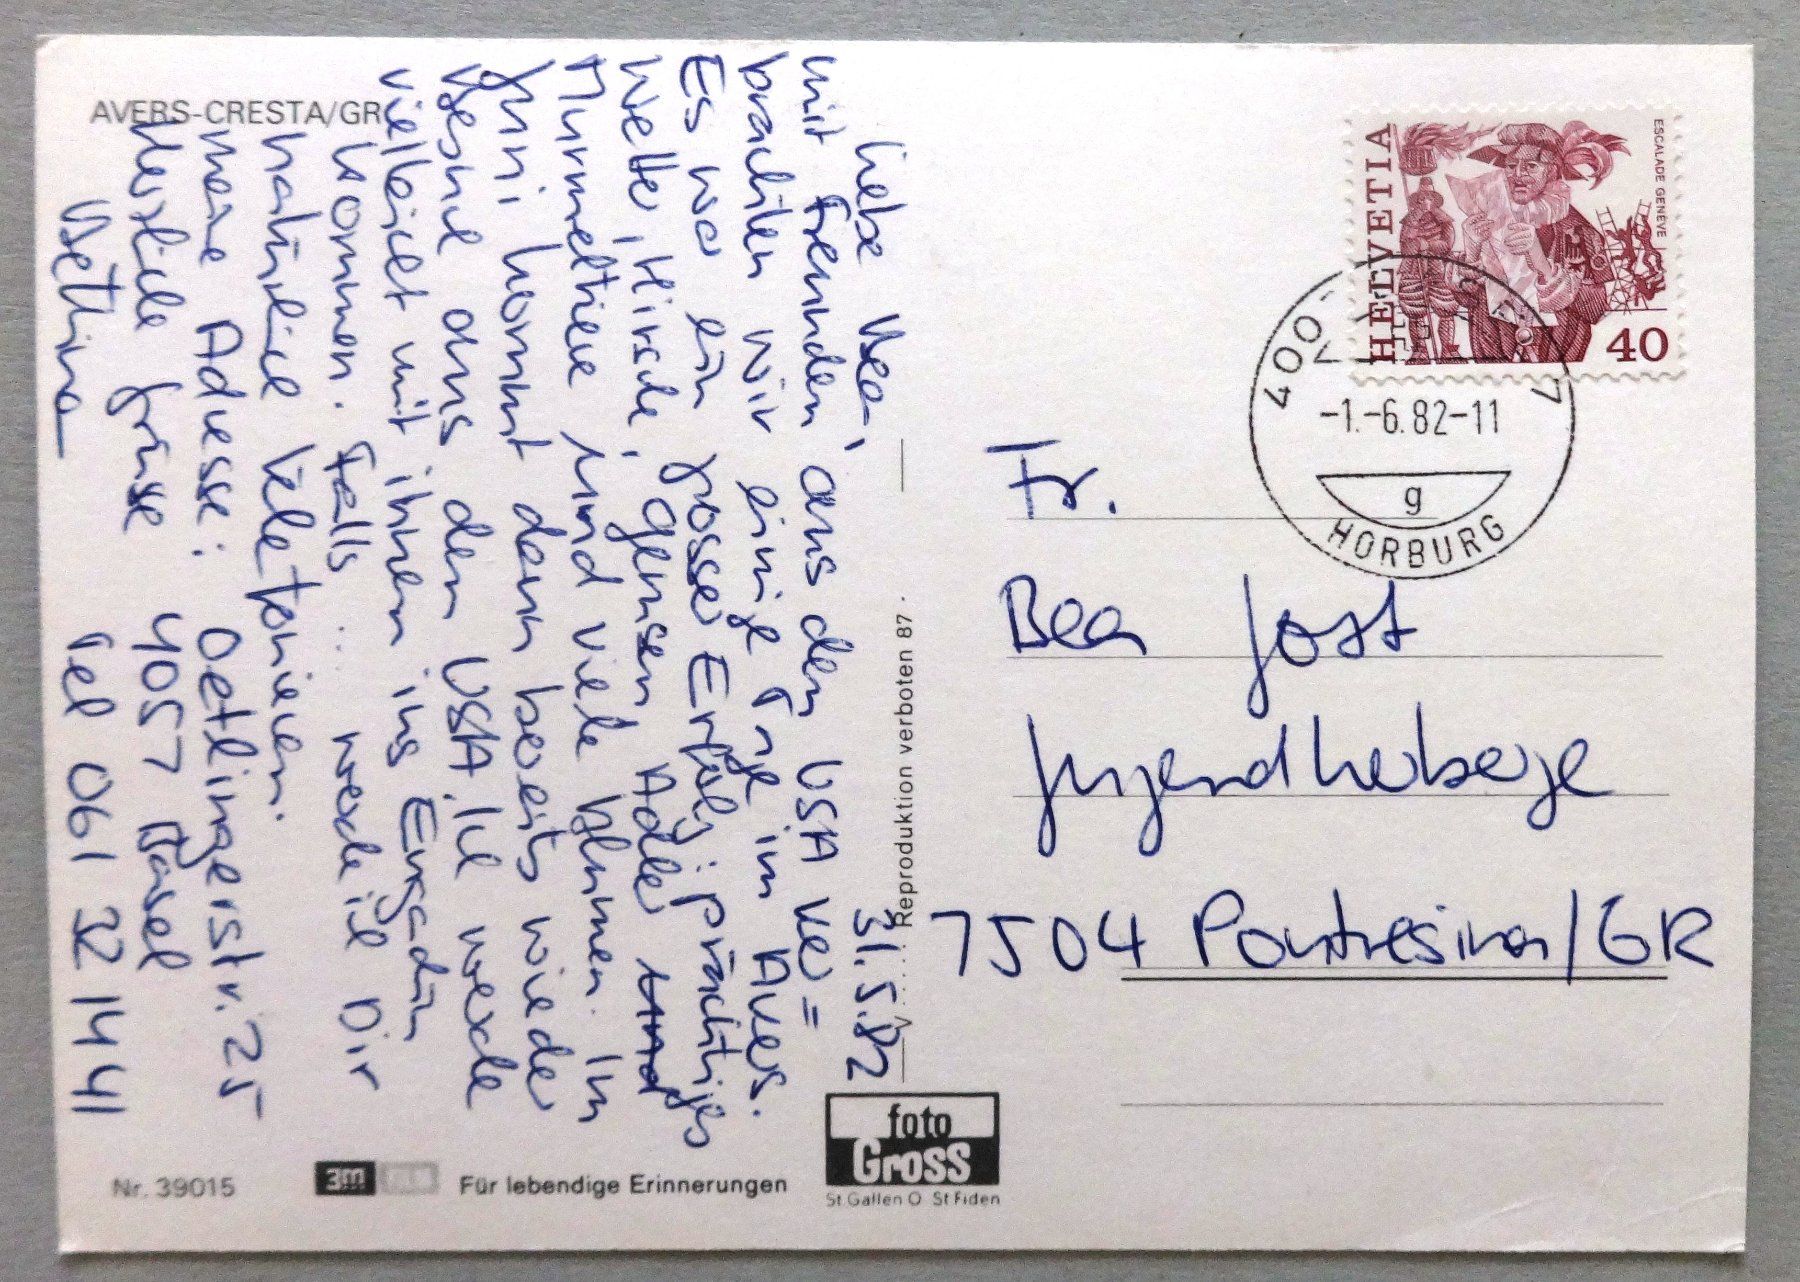 AVERS-CRESTA/GR
31.5.82
Liebe Bea,
mit Freunden aus den USA ver=
brachten wir einige Tage im Avers.
Es war ein grosser Erfolg: prächtiges
Wetter, Hirsche, Gemsen, Adler und
Murmeltiere und viele Blumen. Im
Juni kommt dann bereits wieder
Besuch aus den USA. Ich werde
vielleicht mit ihnen ins Engadin
kommen. Falls ... werde ich Dir
natürlich telefonieren.
Meine Adresse: Oetlingerstr. 25
4057 Basel
Herzliche Grüsse
Tel 061 32 14 41
Bettina
Nr. 39015
3m
Für lebendige Erinnerungen
foto
Gross
St.Gallen O St Fiden
V..... Reproduktion verboten 87.
HELVETIA
ESCALADE GENÈVE
40
-1.-6.82-11
g
HORBURG
Fr.
Bea Jost
Jugendherberge
7504 Pontresina/GR